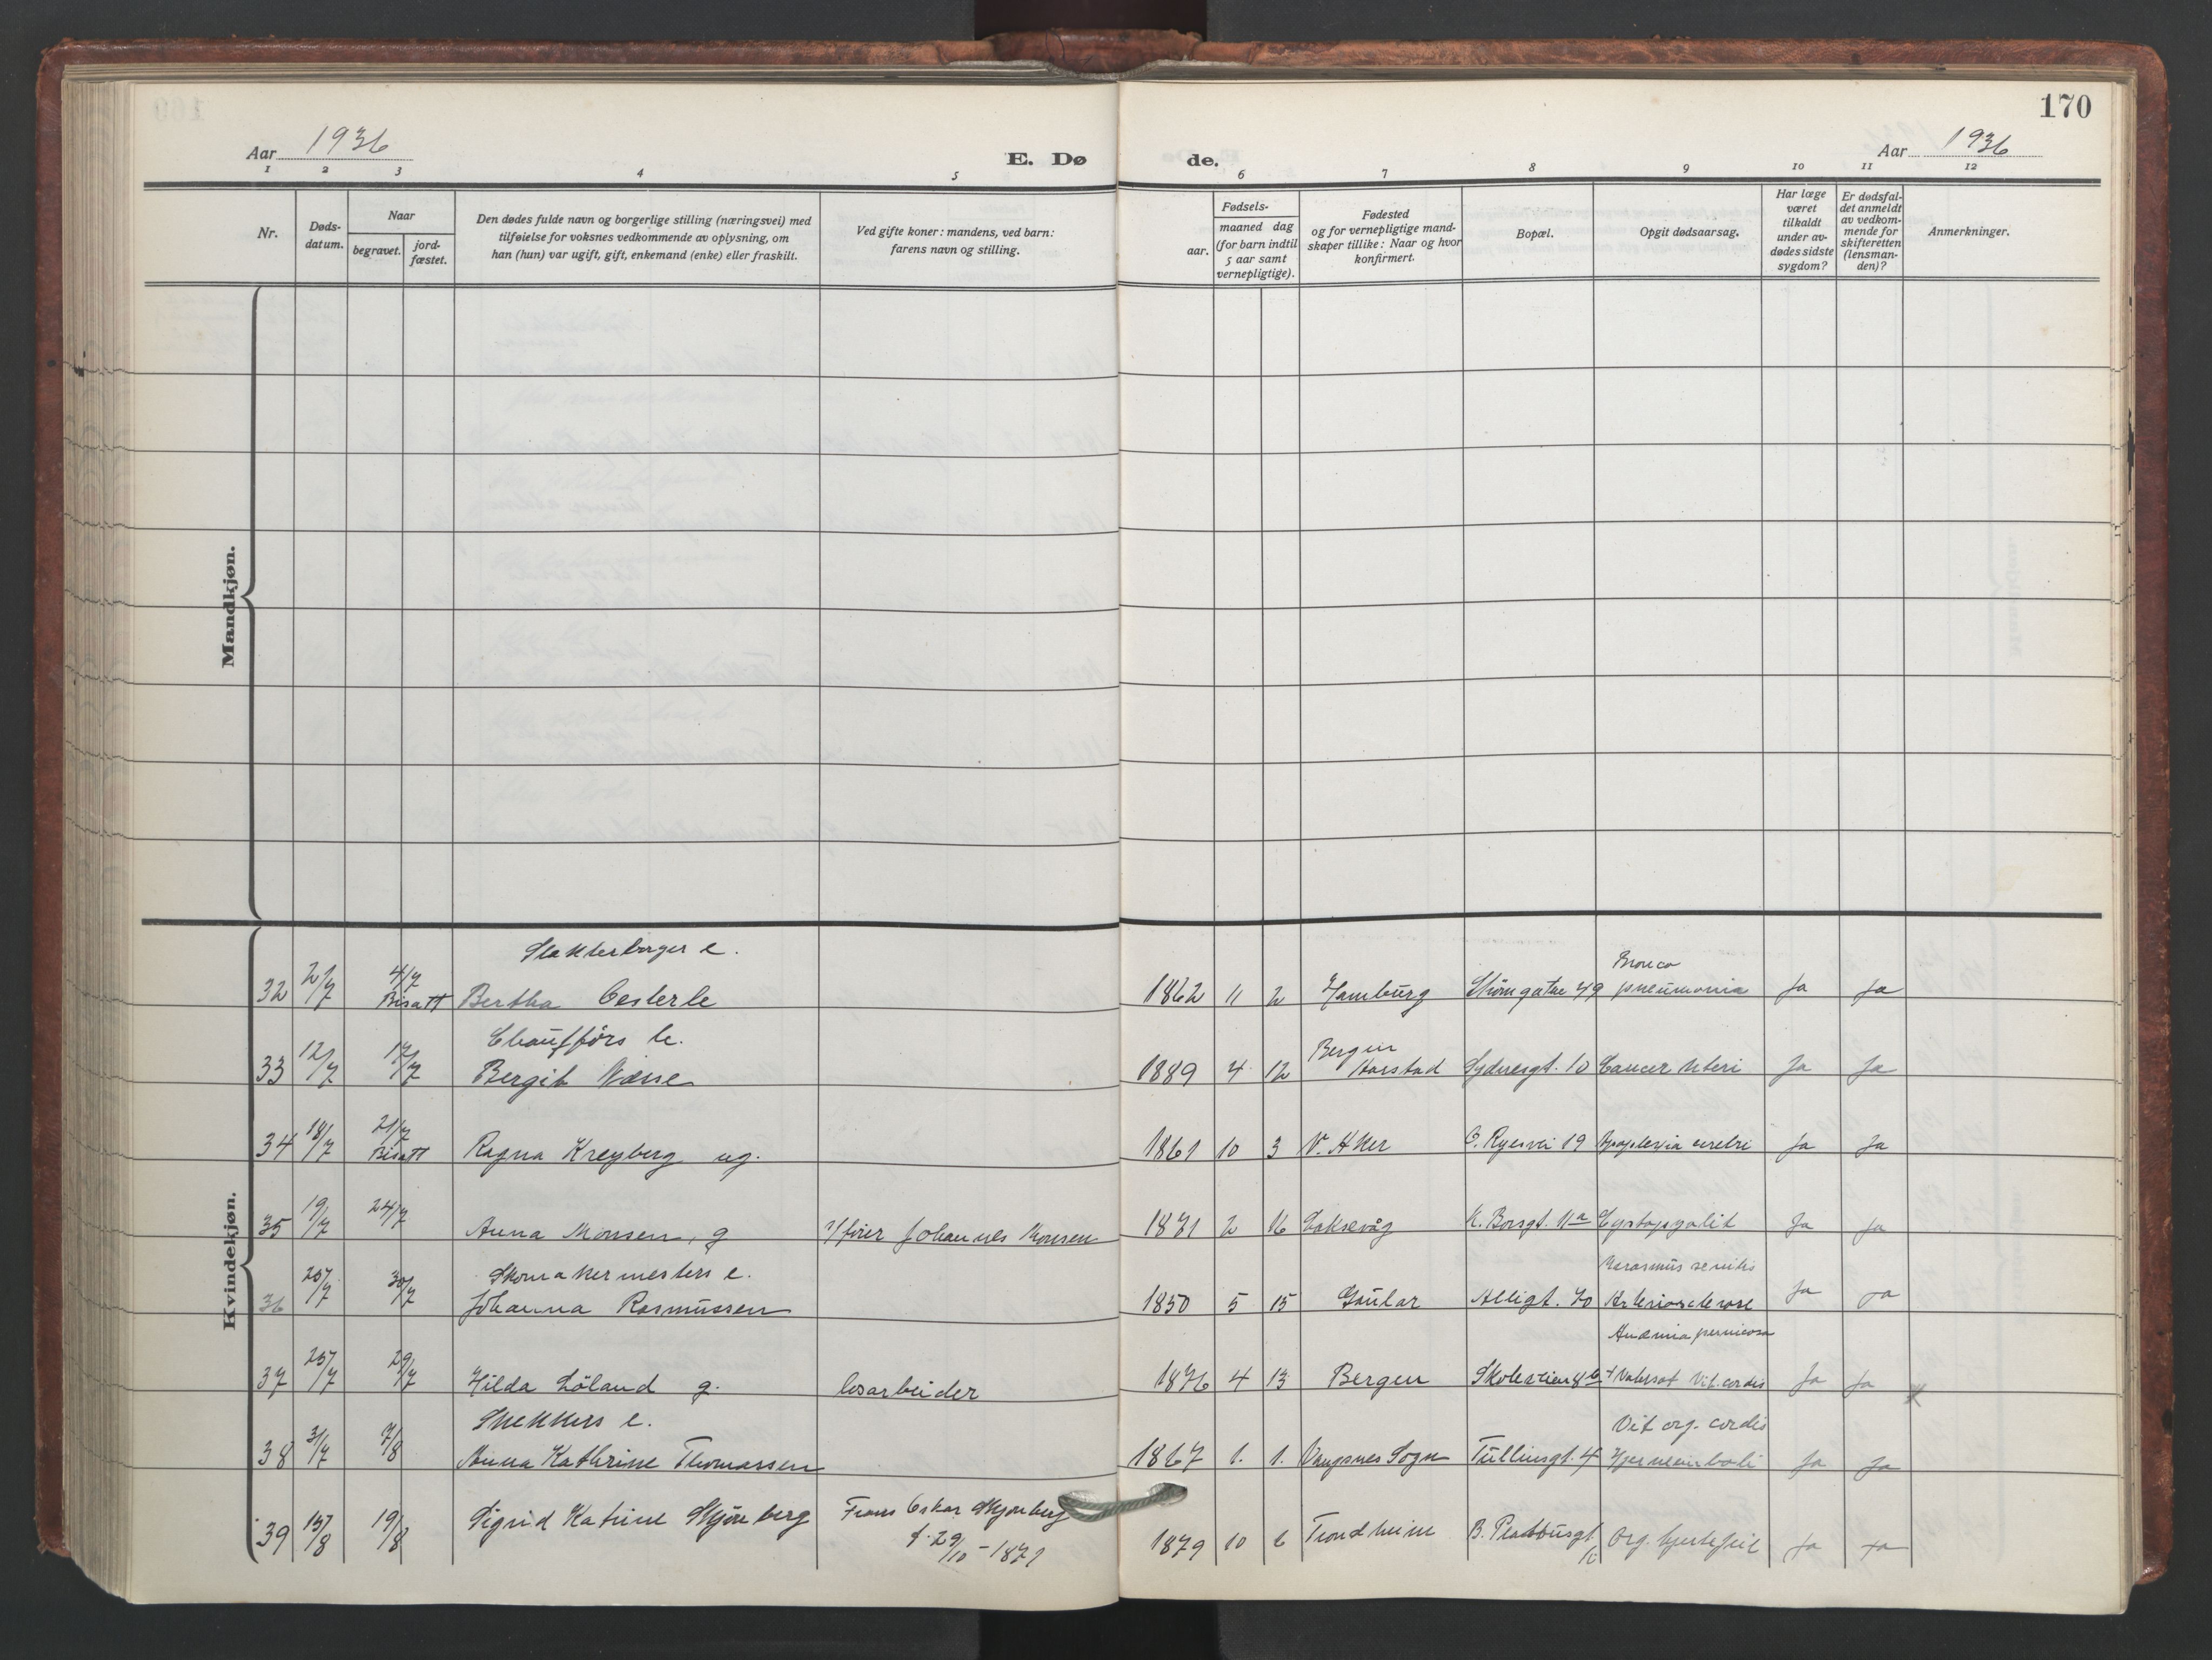 170
Aar 1936
E. Dø de.
Aar 1936
1 2 3 4 5 6 7 8 9 10 11 12
Nr.
Døds-
datum.
Naar
begravet.
jord-
fæstet.
Den dødes fulde navn og borgerlige stilling (næringsvei) med
tilføielse for voksnes vedkommende av oplysning, om
han (hun) var ugift, gift, enkemand (enke) eller fraskilt.
Ved gifte koner: mandens, ved barn:
farens navn og stilling.
aar.
Fødsels-
maaned dag
(for barn indtil
5 aar samt
vernepligtige).
Fødested
og for vernepligtige mand-
skaper tillike: Naar og hvor
konfirmert.
Bopæl.
Opgit dødsaarsag.
Har læge
været
tilkaldt
under av-
dødes sidste
sygdom?
Er dødsfal-
det anmeldt
av vedkom-
mende for
skifteretten
(lensman-
den)?
Anmerkninger.
Mandkjøn.
Kvindekjøn.
Slakterborger e. Bronco
32 2/7 4/7 Bisatt Bertha Oesterle 1862 11 2 Hamburg Strømgaten 49 pneumonia Ja Ja
Chaufførs e. Bergen
33 12/7 17/7 Bergit Næsse 1889 4 12 Harstad Sydnesgt. 10 Cancer Uteri Ja Ja
34 18/7 21/7 Bisatt Ragna Kreyberg ug. 1861 10 3 V. Aker O. Ryesvei 19 Apoplexia cerebri Ja Ja
35 19/7 24/7 Anna Monsen, g Johannes Monsen 1871 2 16 Laksevåg K. Borsgt. 11a Cystopyelit Ja Ja
Skomakermesters e. Marasmus senilis
36 25/7 30/7 Johanna Rasmussen 1850 5 15 Gaular Allégt. 40 Arteriosclerose Ja Ja
Anæmia perniciosa
37 25/7 29/7 Hilda Løland g. løsarbeider 1876 4 13 Bergen Skoleveien 8b + Vit. cordis Ja Ja x
Snekkers e. Vit org. cordis
38 31/7 7/8 Anna Kathrine Thomassen 1867 1. 1. Vangsnes Sogn Tullinsgt. 4 Hjerneemboli Ja Ja
39 15/8 19/8 Sigrid Katrine Skjønberg Frans Oskar Skjønberg 1879 10 6 Trondheim Org. hjertefeil Ja Ja
f. 29/10 - 1871